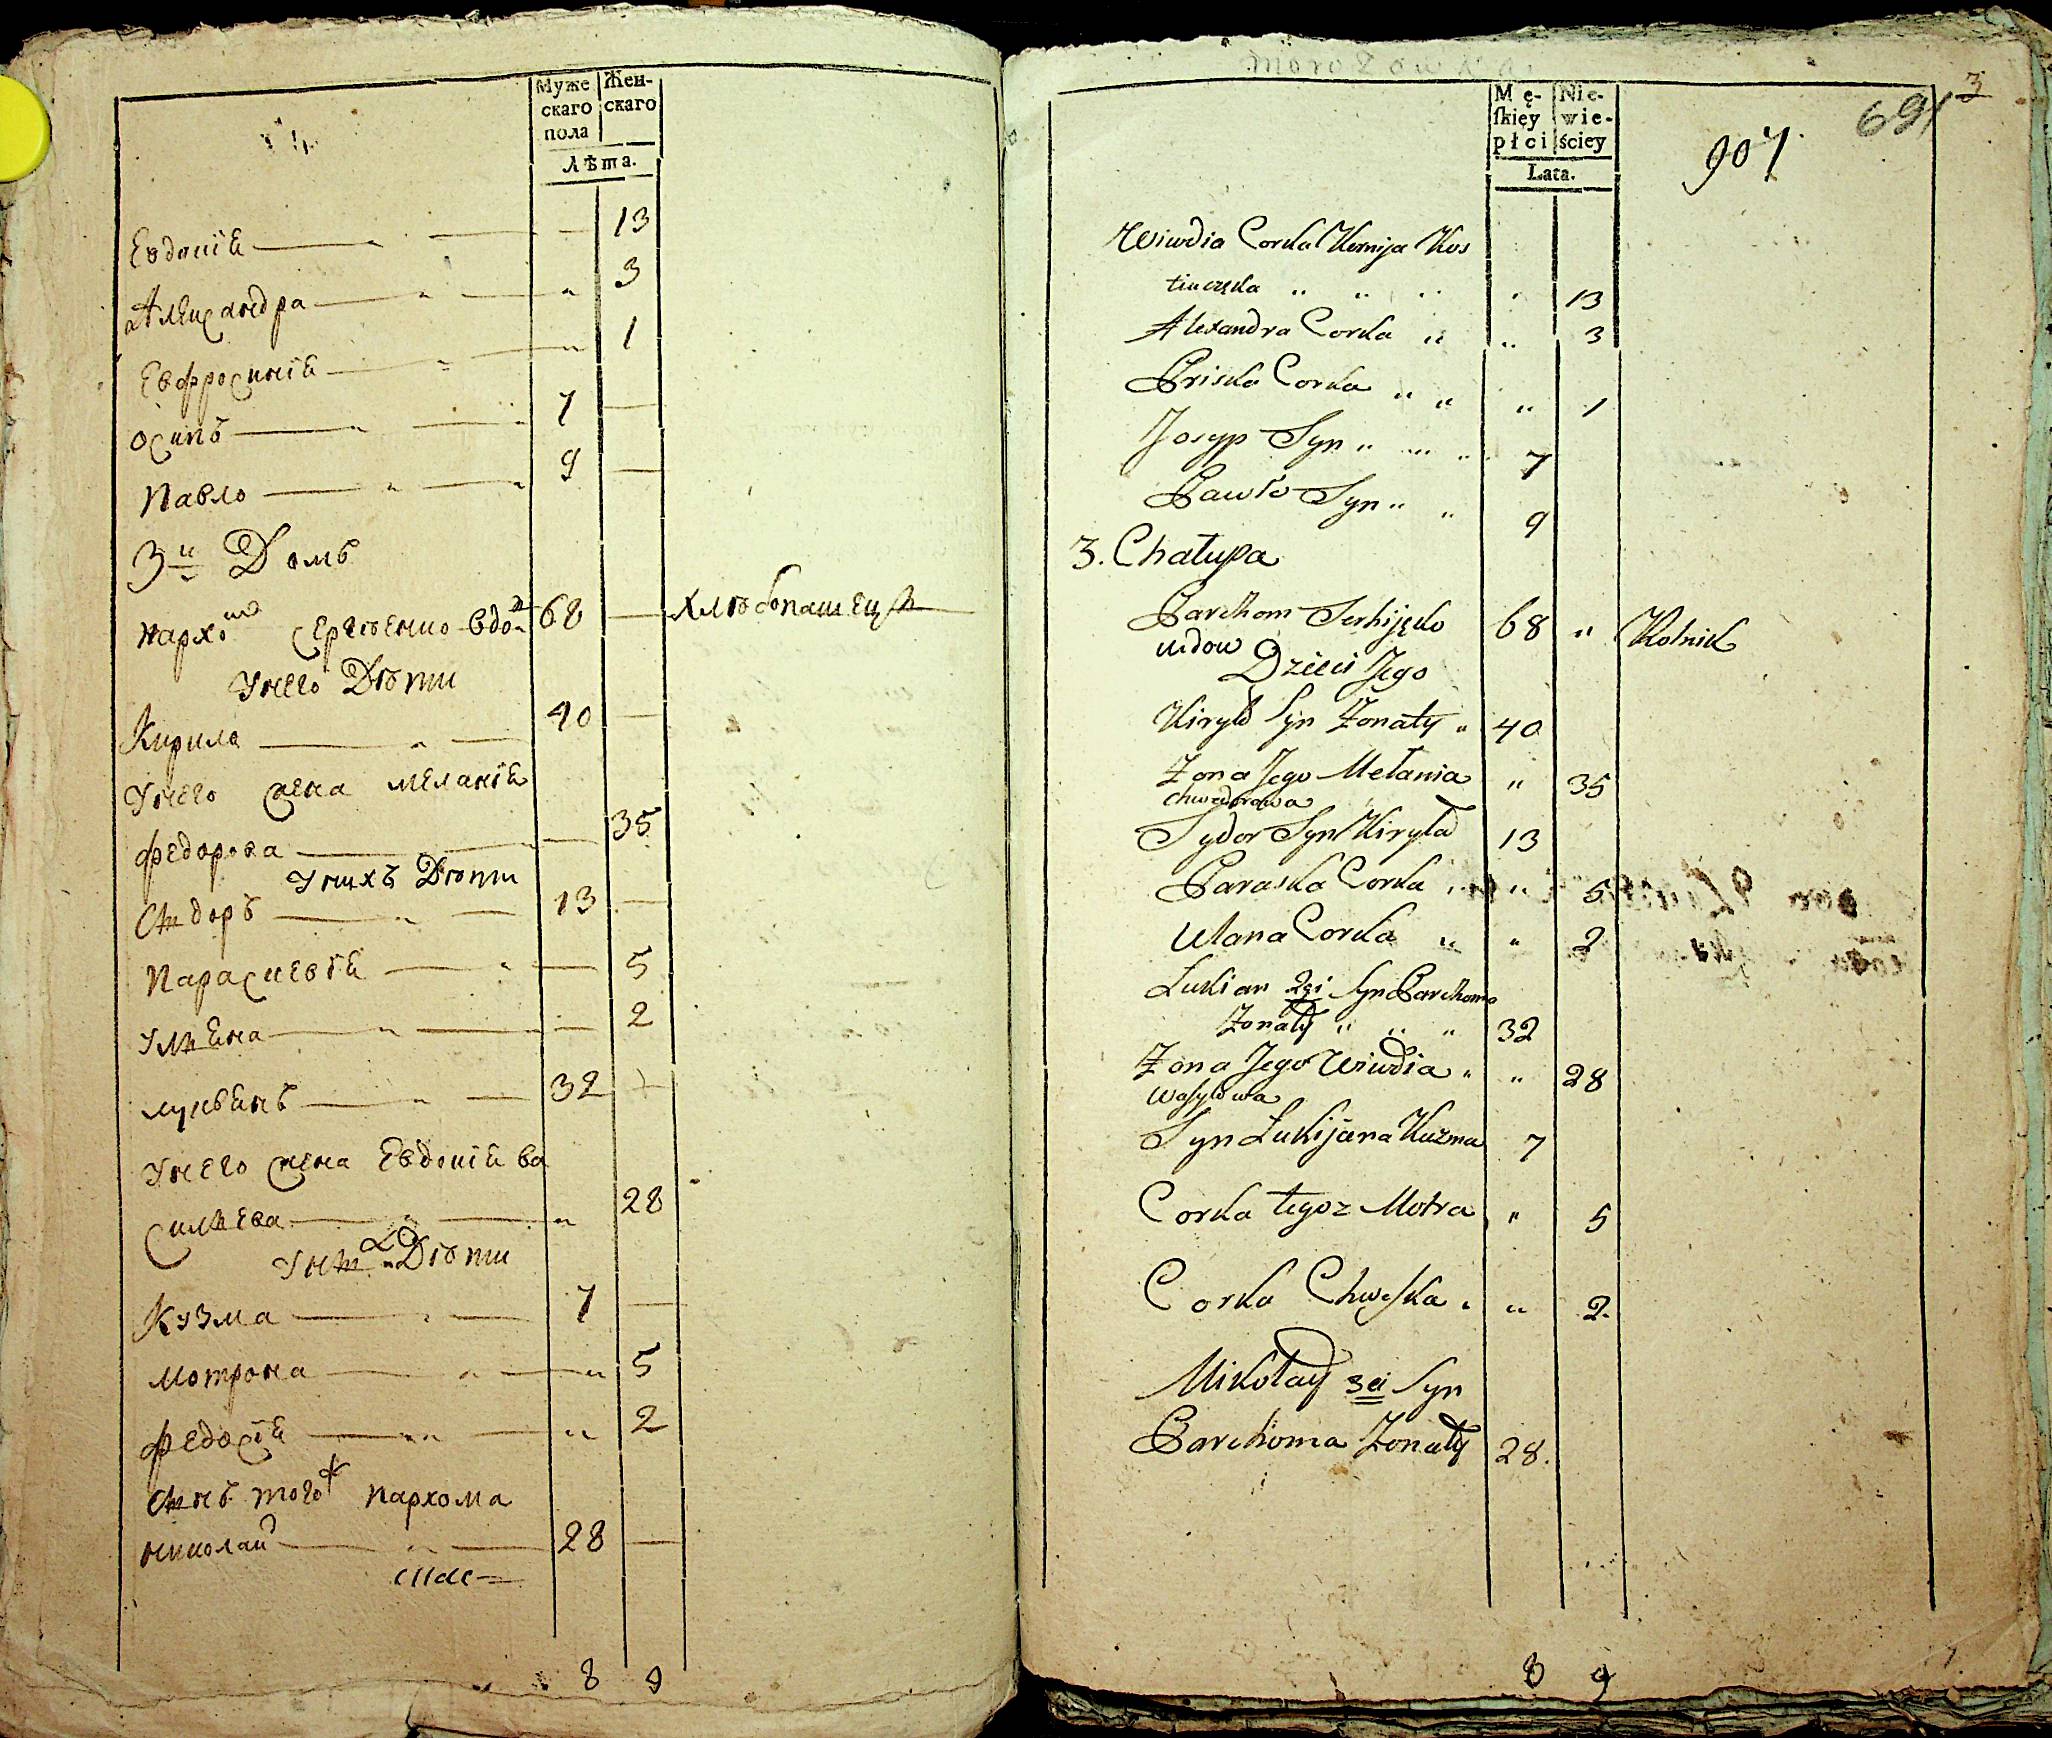 Муже Жен-
скаго скаго
пола
Лѣта.
Евдокіѣ 13
Александра 3
Евфросиніѣ 1
Осипъ 7
Павло 9
3й Домъ
Пархомъ Сергѣенко вдо 68 хлѣбопашецъ
У него Дѣти
Кирило 40
У него жена Меланіѣ
Федорова 35
У нихъ Дѣти
Сидоръ 13
Параскевіѣ 5
Улѣена 2
Лукьянъ 32
У него жена Евдокіѣ Ва
силѣева 28
У них Дѣти
Кузма 7
Мотрона 5
Федосіѣ 2
Сынъ того ж Пархома
Николай 28
8 9
Morozowka
Mę- Nie-
ſkięy wie-
płci ściey
Lata.
3
691
907
Wiwdia Corka Kornija Kos
tiuczęka 13
Alexandra Corka 3
Priska Corka 1
Josyp Syn 7
Pawło Syn 9
3. Chałupa
Parchom Serhijęko 68 Rolnik
wdow
Dzieci Jego
Kiryło Syn Żonaty 40
Żona Jego Mełania 35
Chwedorowa
Sydor Syn Kiryła 13
Paraska Corka 5
Ulana Corka 2
Lukian 2gi Syn Parchoma
Żonaty 32
Żona Jego Wiwdia 28
Wasylowa
Syn Łukijana Kuzma 7
Corka tegoz Motra 5
Corka Chweſka 2.
Mikołay 3ci Syn
Parchoma Żonaty 28.
8 9